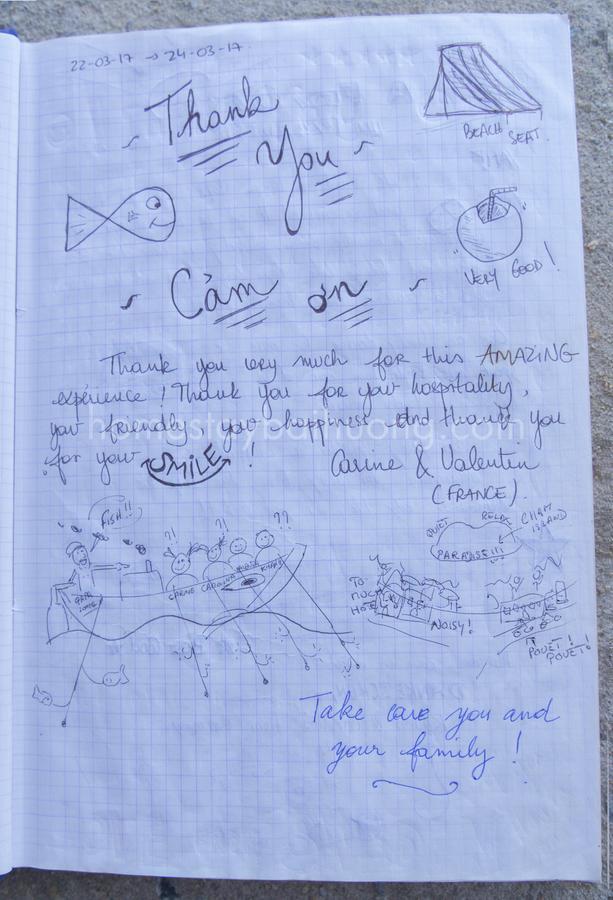 22-03-17 → 24-03-17
Thank
You
BEACH SEAT.
Cảm ơn
VERY GOOD!
Thank you very much for this AMAZING
expérience! Thank you for your hospitality,
your friendly, your happiness and thank you
for your SMILE!
Carine & Valentin
(FRANCE).
homestaybaihuong.com
FISH!!
?!
??
?!
??
CARINE
CAROLINA
QUIET
RELAX
CHAM
ISLAND
PARADISE!!!
TO
MUCH
HOTEL
NOISY!
POUET!
POUET!
Take care you and
your family!